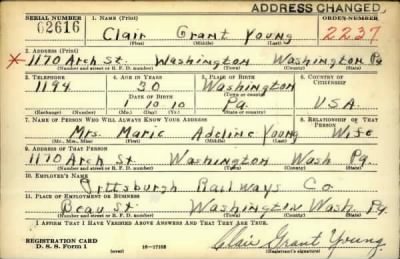 ADDRESS CHANGED
SERIAL NUMBER 1. NAME (Print) ORDER NUMBER
02616 Clair Grant Young 2237
(First) (Middle) (Last)
2. ADDRESS (Print)
* 1170 Arch St. Washington Washington Pa
(Number and street or R. F. D. number) (Town) (County) (State)
3. TELEPHONE 4. AGE IN YEARS 5. PLACE OF BIRTH 6. COUNTRY OF CITIZENSHIP
1194 30 Washington
DATE OF BIRTH (Town or county)
1 10 10 Pa. U.S.A.
(Exchange) (Number) (Mo.) (Day) (Yr.) (State or country)
7. NAME OF PERSON WHO WILL ALWAYS KNOW YOUR ADDRESS 8. RELATIONSHIP OF THAT PERSON
Mrs. Marie Adeline Young Wife
(Mr., Mrs., Miss) (First) (Middle) (Last)
9. ADDRESS OF THAT PERSON
1170 Arch St Washington Wash Pa.
(Number and street or R. F. D. number) (Town) (County) (State)
10. EMPLOYER'S NAME
Pittsburgh Railways Co
11. PLACE OF EMPLOYMENT OR BUSINESS
Beau St Washington Wash. Pa.
(Number and street or R. F. D. number) (Town) (County) (State)
I AFFIRM THAT I HAVE VERIFIED ABOVE ANSWERS AND THAT THEY ARE TRUE.
REGISTRATION CARD
D. S. S. Form 1 (over) 16—17105 Clair Grant Young
(Registrant's signature)